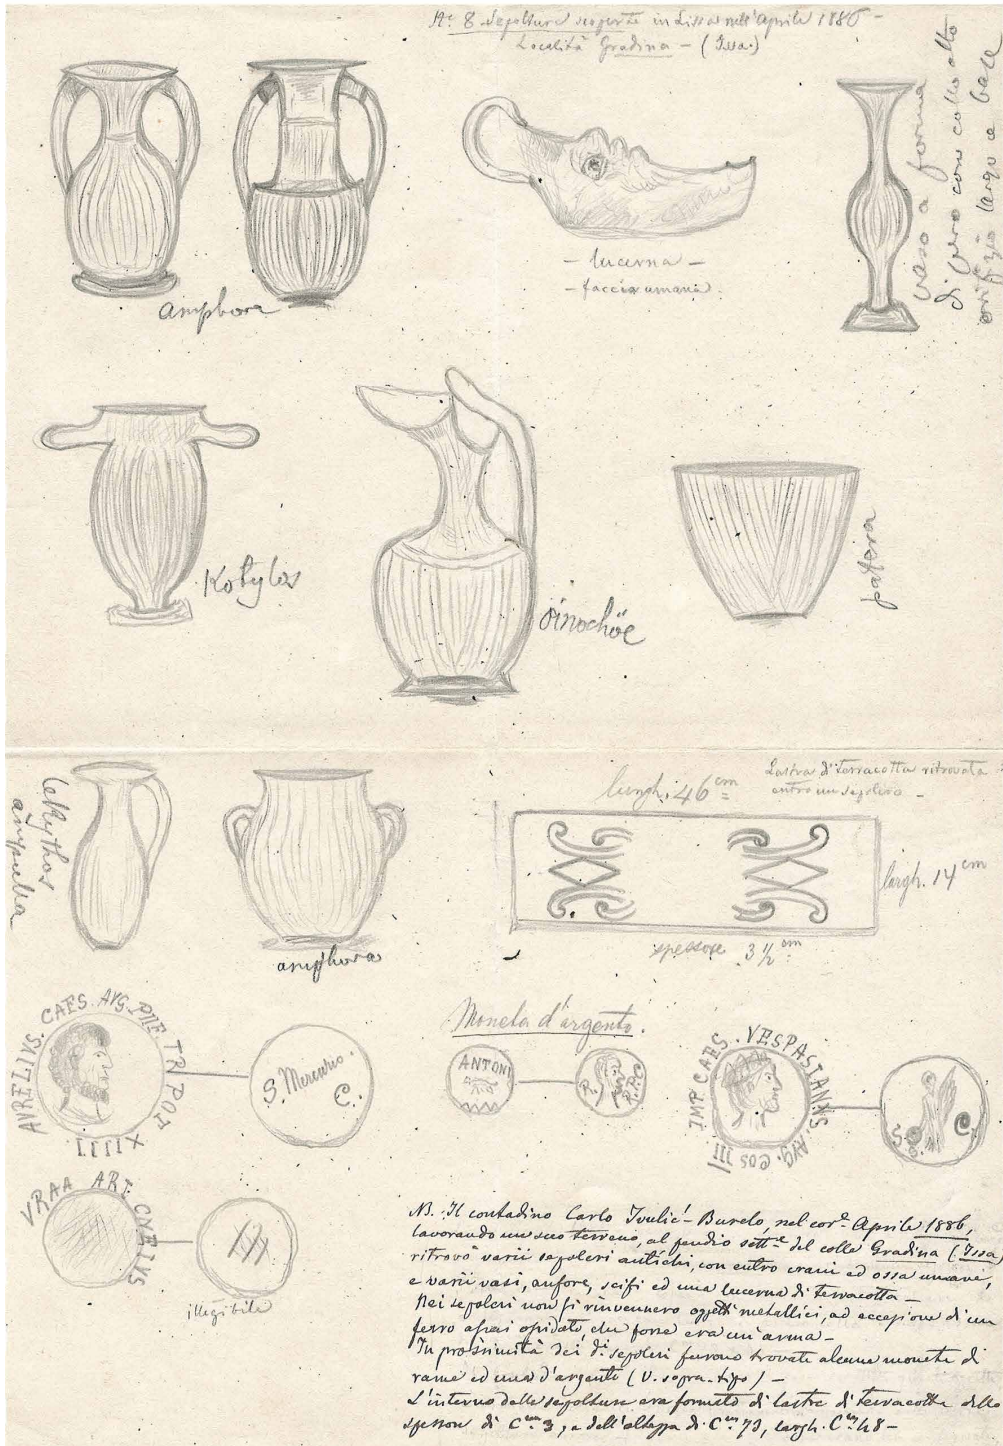 N.º 8 Sepolture scoperte in Lissa nell'Aprile 1886 –
Località Gradina – (Issa.)
amphore
– lucerna –
– faccia umana.
vaso a forma
di fero con collo alto
orifizio largo e base
Kotylos
oinochöe
patera
lekythos
ampulla
amphora
Lastra di terracotta ritrovata
entro un sepolcro –
lungh: 46 cm
largh. 14 cm
spessore 3 ½ cm
AVRELIVS. CAES. AVG. PII F. TR POT
XIIII
S. Mercurio. C.
Moneta d'argento.
ANTONI
R. P. C
IMP CAES. VESPASIANVS. AVG. COS III
S. C.
VRAA ART CNELVS
illegibile
N.B. Il contadino Carlo Ivulić-Burelo, nel corᵉ Aprile 1886,
lavorando un suo terreno, al pendio settᵉ del colle Gradina (Issa)
ritrovò varii sepolcri antichi, con entro crani ed ossa umane,
e varii vasi, anfore, scifi ed una lucerna di terracotta –
Nei sepolcri non si rinvennero oggetti metallici, ad eccezione di un
ferro assai ossidato, che forse era un'arma –
In prossimità dei dⁱ sepolcri furono trovate alcune monete di
rame ed una d'argento (V. sopra tipo) –
L'interno delle sepolture era formato di lastre di terracotta dello
spessore di Cᵐ 3, e dell'altezza di Cᵐ 73, largh. Cᵐ 48 –